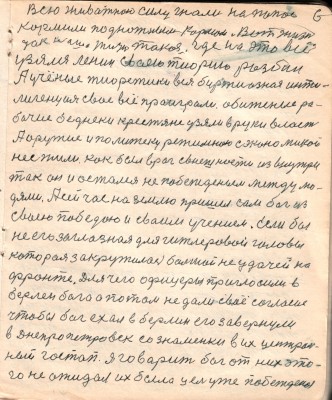 Всю живатною силу гнали на
кормили подножным кормом. Вот жизн
так жизн такая, где на это всё
узяли ленин своею тиорию разбил
А учёные тиоретики вся буржиазная инти-
лигенция свае всё програли. обиженые ра-
бочие бедняки крестяне узяли в руки власт
А оружие и политеку режимною с экономикой
нес жили. как был враг свещности из внутри
так он и остался не побежденым между лю-
дями. А сей час на землю пришел сам бог из
своею победою и своим учением. Если бы
не его заглазная для гитлеровой головы
которая закружилас большой не удачей на
фронте, для чего офицеры пригласили в
берлен бога а потом не дали своё согласие
чтобы бог ехал в берлин его завернули
в днепропетровск со знаменки в их централ-
ный гостап. Я говорит бог от них это-
го не ожидал их была цел уже побежденая